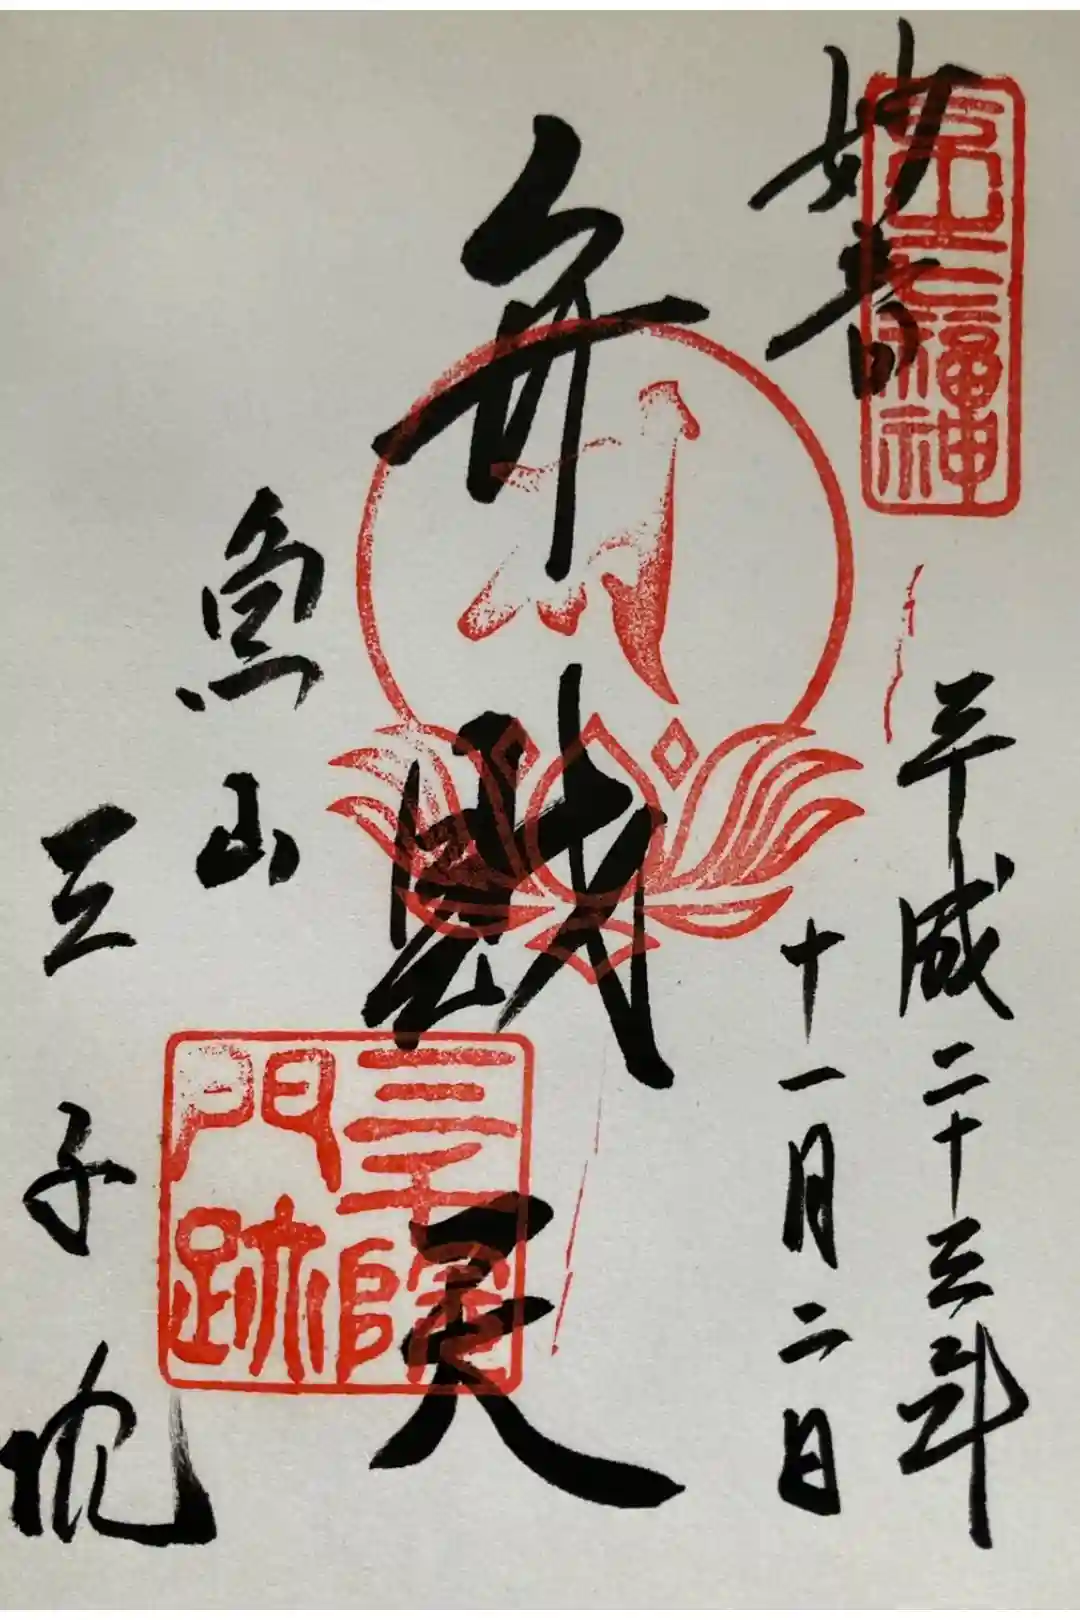 京之七福神
妙音
平成二十三年
十一月二日
弁財天
魚山
三千院
三千院
門跡